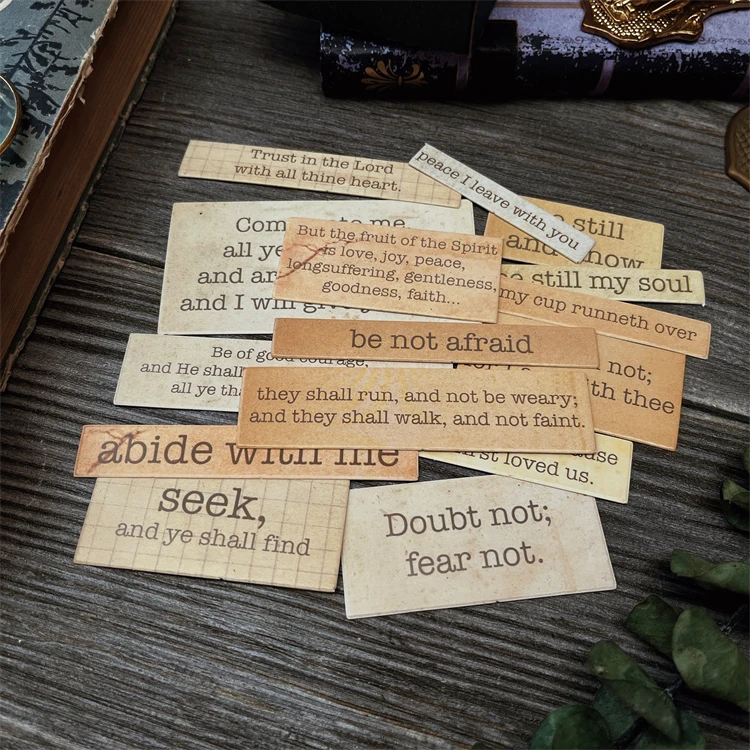 Trust in the Lord
with all thine heart.
peace I leave with you
still
and know
be still my soul
my cup runneth over
Com to me
all ye
and ar
and I will giv
But the fruit of the Spirit
is love, joy, peace,
longsuffering, gentleness,
goodness, faith...
be not afraid
not;
with thee
Be of good courage,
and He shall
all ye tha
they shall run, and not be weary;
and they shall walk, and not faint.
abide with me
first loved us.
seek,
and ye shall find
Doubt not;
fear not.